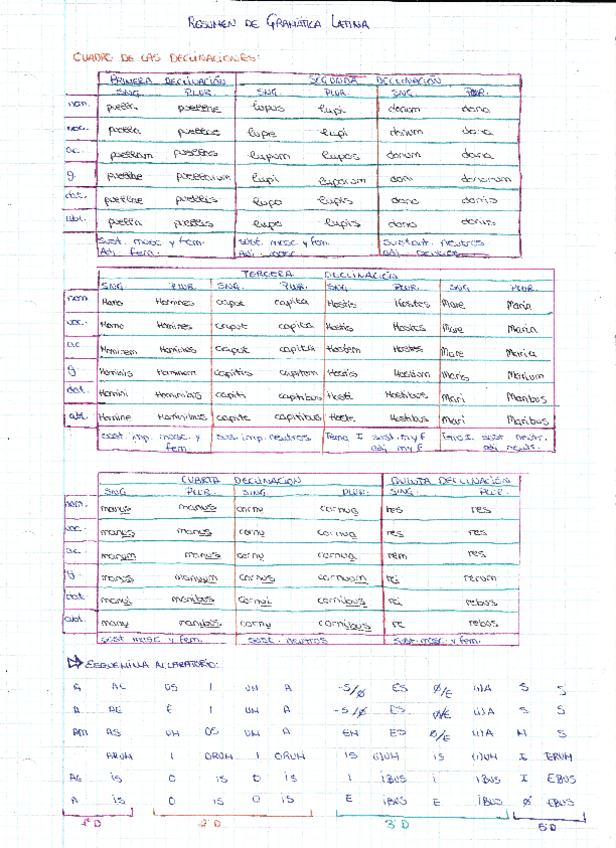 RESUMEN DE GRAMÁTICA LATINA
CUADRO DE LAS DECLINACIONES:
PRIMERA DECLINACIÓN SEGUNDA DECLINACIÓN
SNG. PLUR. SNG. PLUR. SNG. PLUR.
nom. puella puellae lupus lupi donum dona
voc. puella puellae lupe lupi donum dona
ac. puellam puellas lupum lupos donum dona
g. puellae puellarum lupi luporum doni donorum
dat. puellae puellis lupo lupis dono donis
abl. puella puellis lupo lupis dono donis
Sust. masc y fem. sust. masc y fem. Sustant. neutros
Adj. fem. Adj. masc. adj. neutros
TERCERA DECLINACIÓN
SNG. PLUR. SNG. PLUR. SNG. PLUR. SNG PLUR.
nom Homo Homines caput capita Hostis Hostes Mare Maria
voc. Homo Homines caput capita Hostis Hostes Mare Maria
ac Hominem Homines caput capita Hostem Hostes Mare Maria
g. Hominis Hominum capitis capitum Hostis Hostium Maris Marium
dat. Homini Hominibus capiti capitibus Hosti Hostibus Mari Maribus
abl. Homine Hominibus capite capitibus Hoste Hostibus Mari Maribus
sust. imp. masc. y sus. imp. neutros Tema I sust. m y f Tema I. sust neutr.
fem. adj. m y f adj. neutr.
CUARTA DECLINACIÓN QUINTA DECLINACIÓN
SNG PLUR. SING. PLUR. SING. PLUR.
nom. manus manus cornu cornua res res
voc. manus manus cornu cornua res res
ac. manum manus cornu cornua rem res
g. manus manuum cornus cornuum rei rerum
dat. manui manibus cornui cornibus rei rebus
abl. manu manibus cornu cornibus re rebus
sust masc y fem. sust. neutros Sust. masc. y fem.
ESQUEMINA ACLARATORIO:
A AE US I UM A -S/Ø ES Ø/E (I)A S S
A AE E I UM A -S/Ø ES Ø/E (I)A S S
AM AS UM OS UM A EM ES Ø/E (I)A M S
ARUM I ORUM I ORUM IS (I)UM IS (I)UM I ERUM
AE is O is O is I iBUS i iBUS I EBUS
A is O is O is E iBUS E iBUS Ø EBUS
1ª D 2ª D 3ª D 5ª D